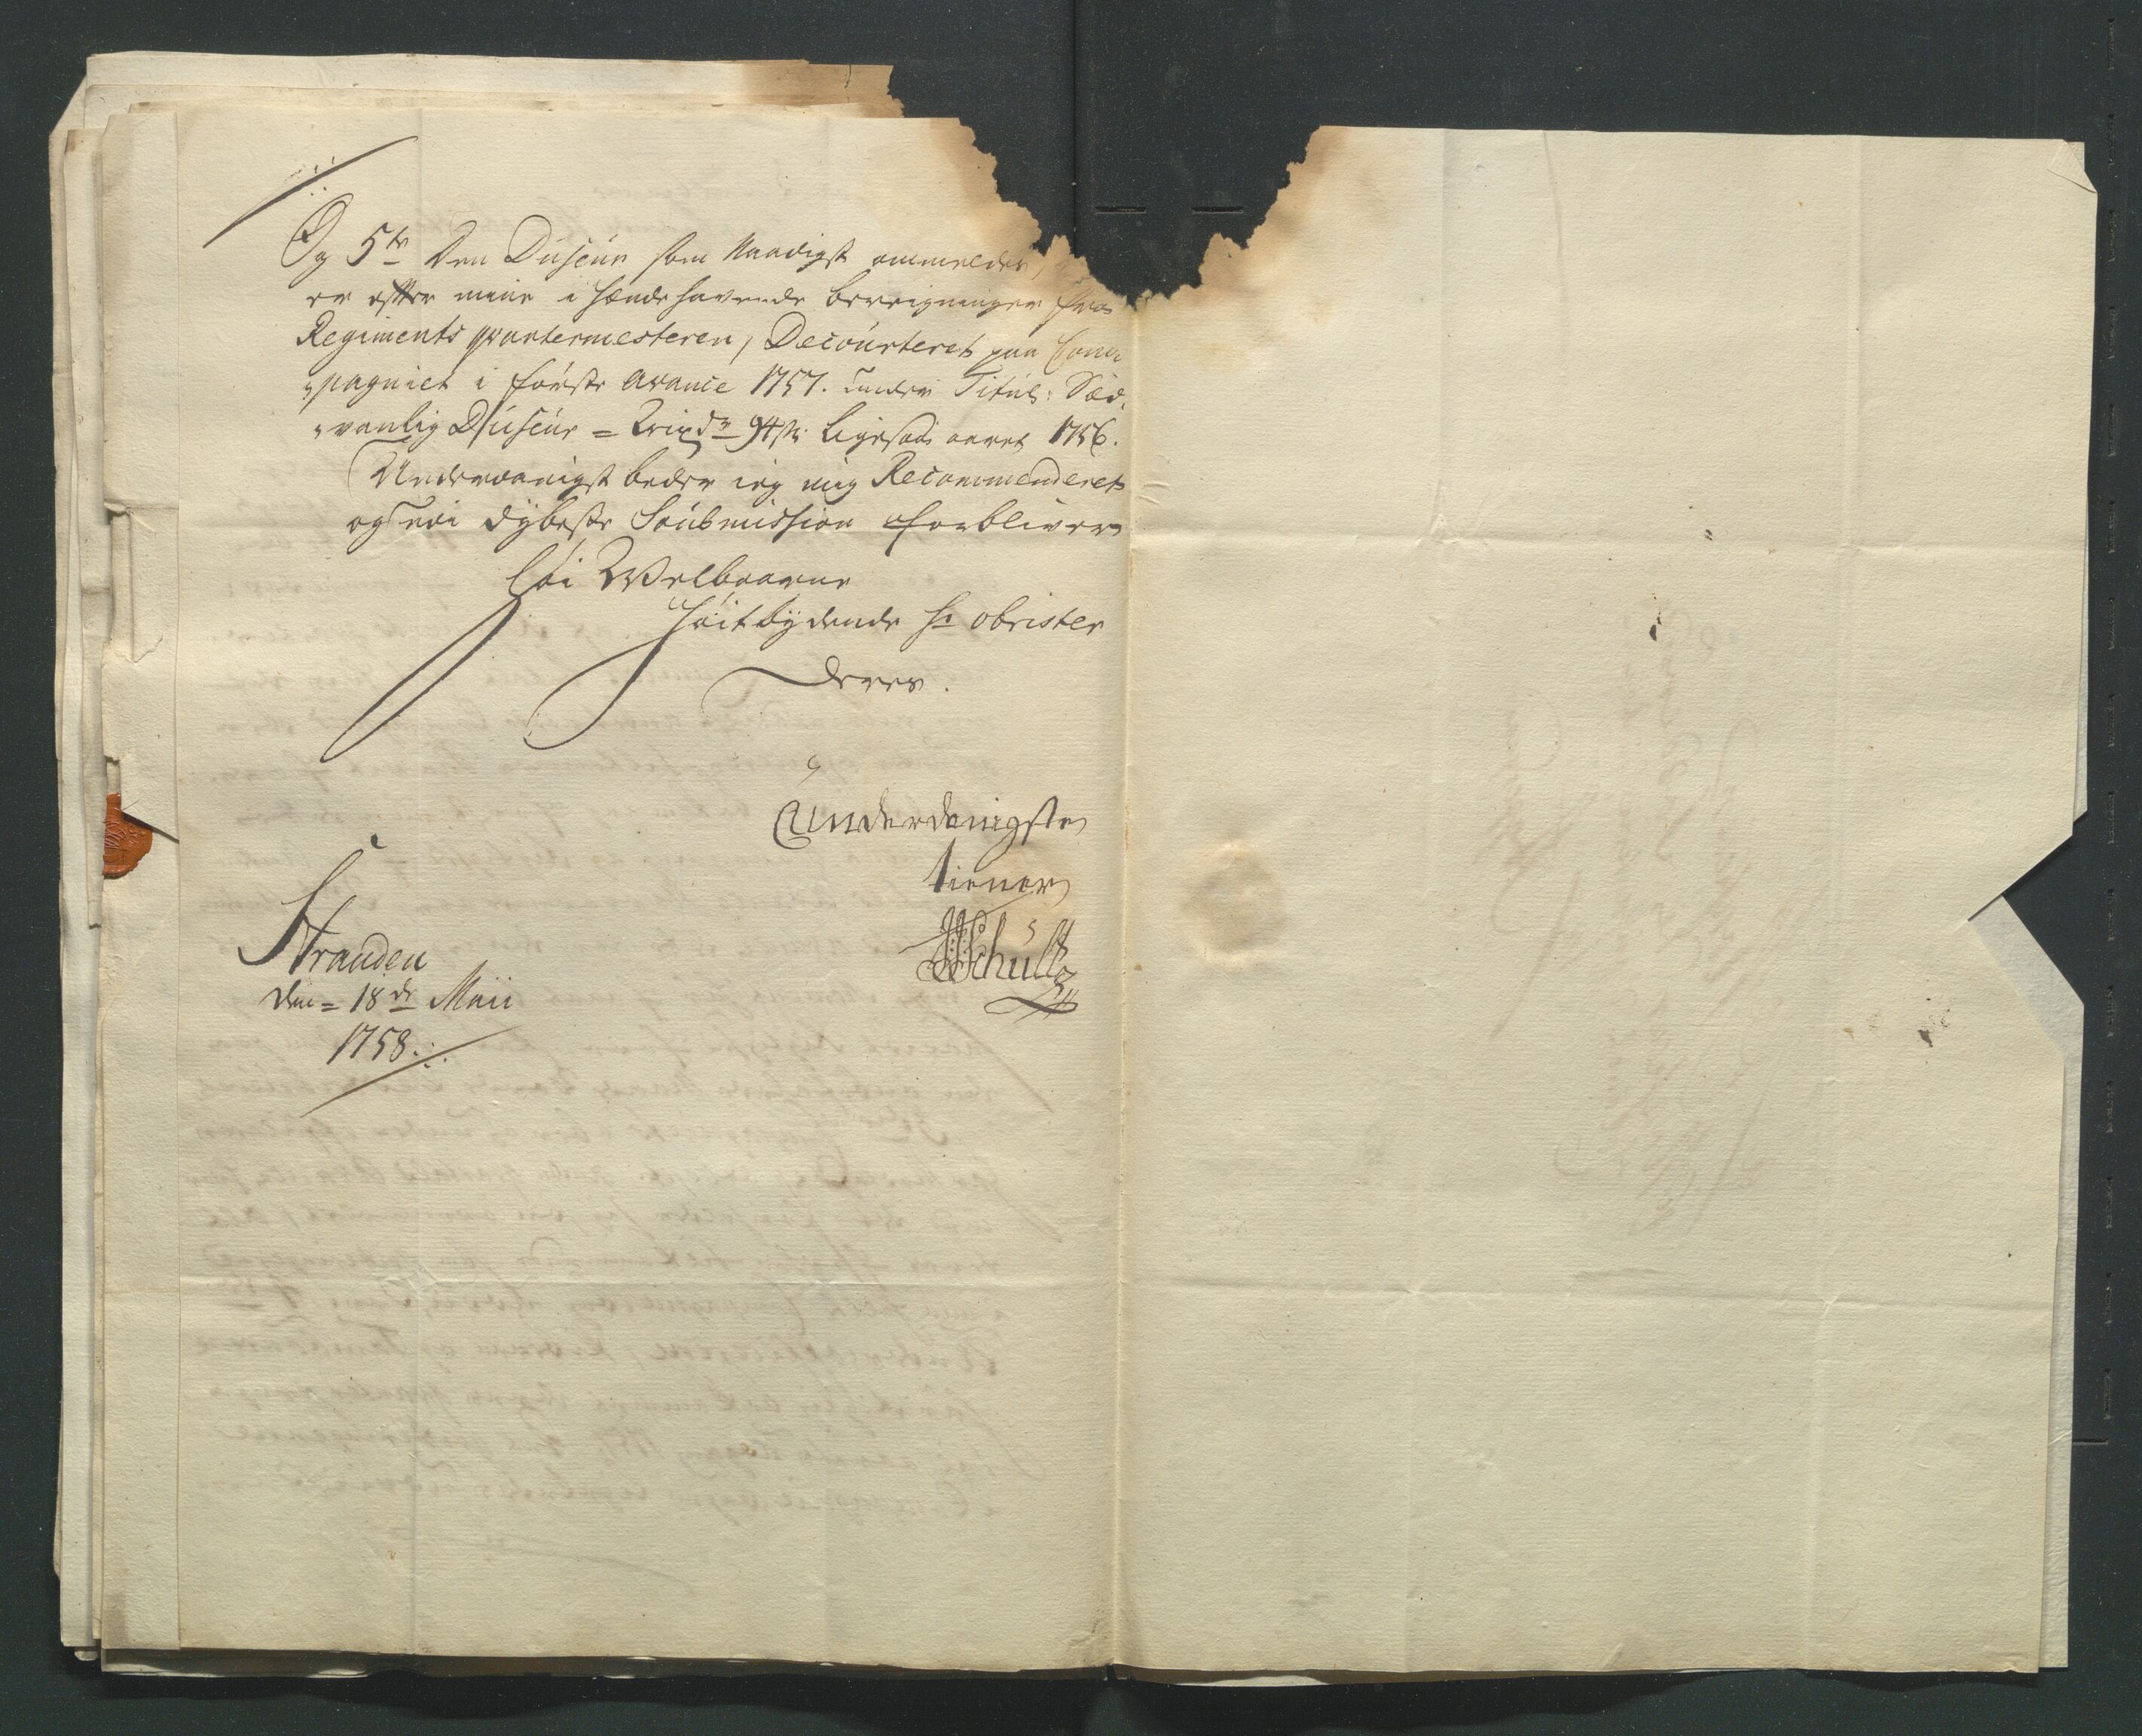 Og 5te Den Düseur som Naadigst ommeldes,
er efter mine i hænde havende bereigninger fra
Regiments qvartermesteren, Decourteret paa Com
„pagniet i första avance 1757. under Titul: Sæd,
„vanlig Düseur = 94 s: ligesaa aaret 1756.
Underdanigst beder ieg mig Recommenderet
og udi dÿbeste Soubmission forbliver
Höi Welbaarne
Höitbÿdende Hr obrister
Deres.
Underdanigste
tiener
Schultz
Stranden
den = 18de Maii
1758.